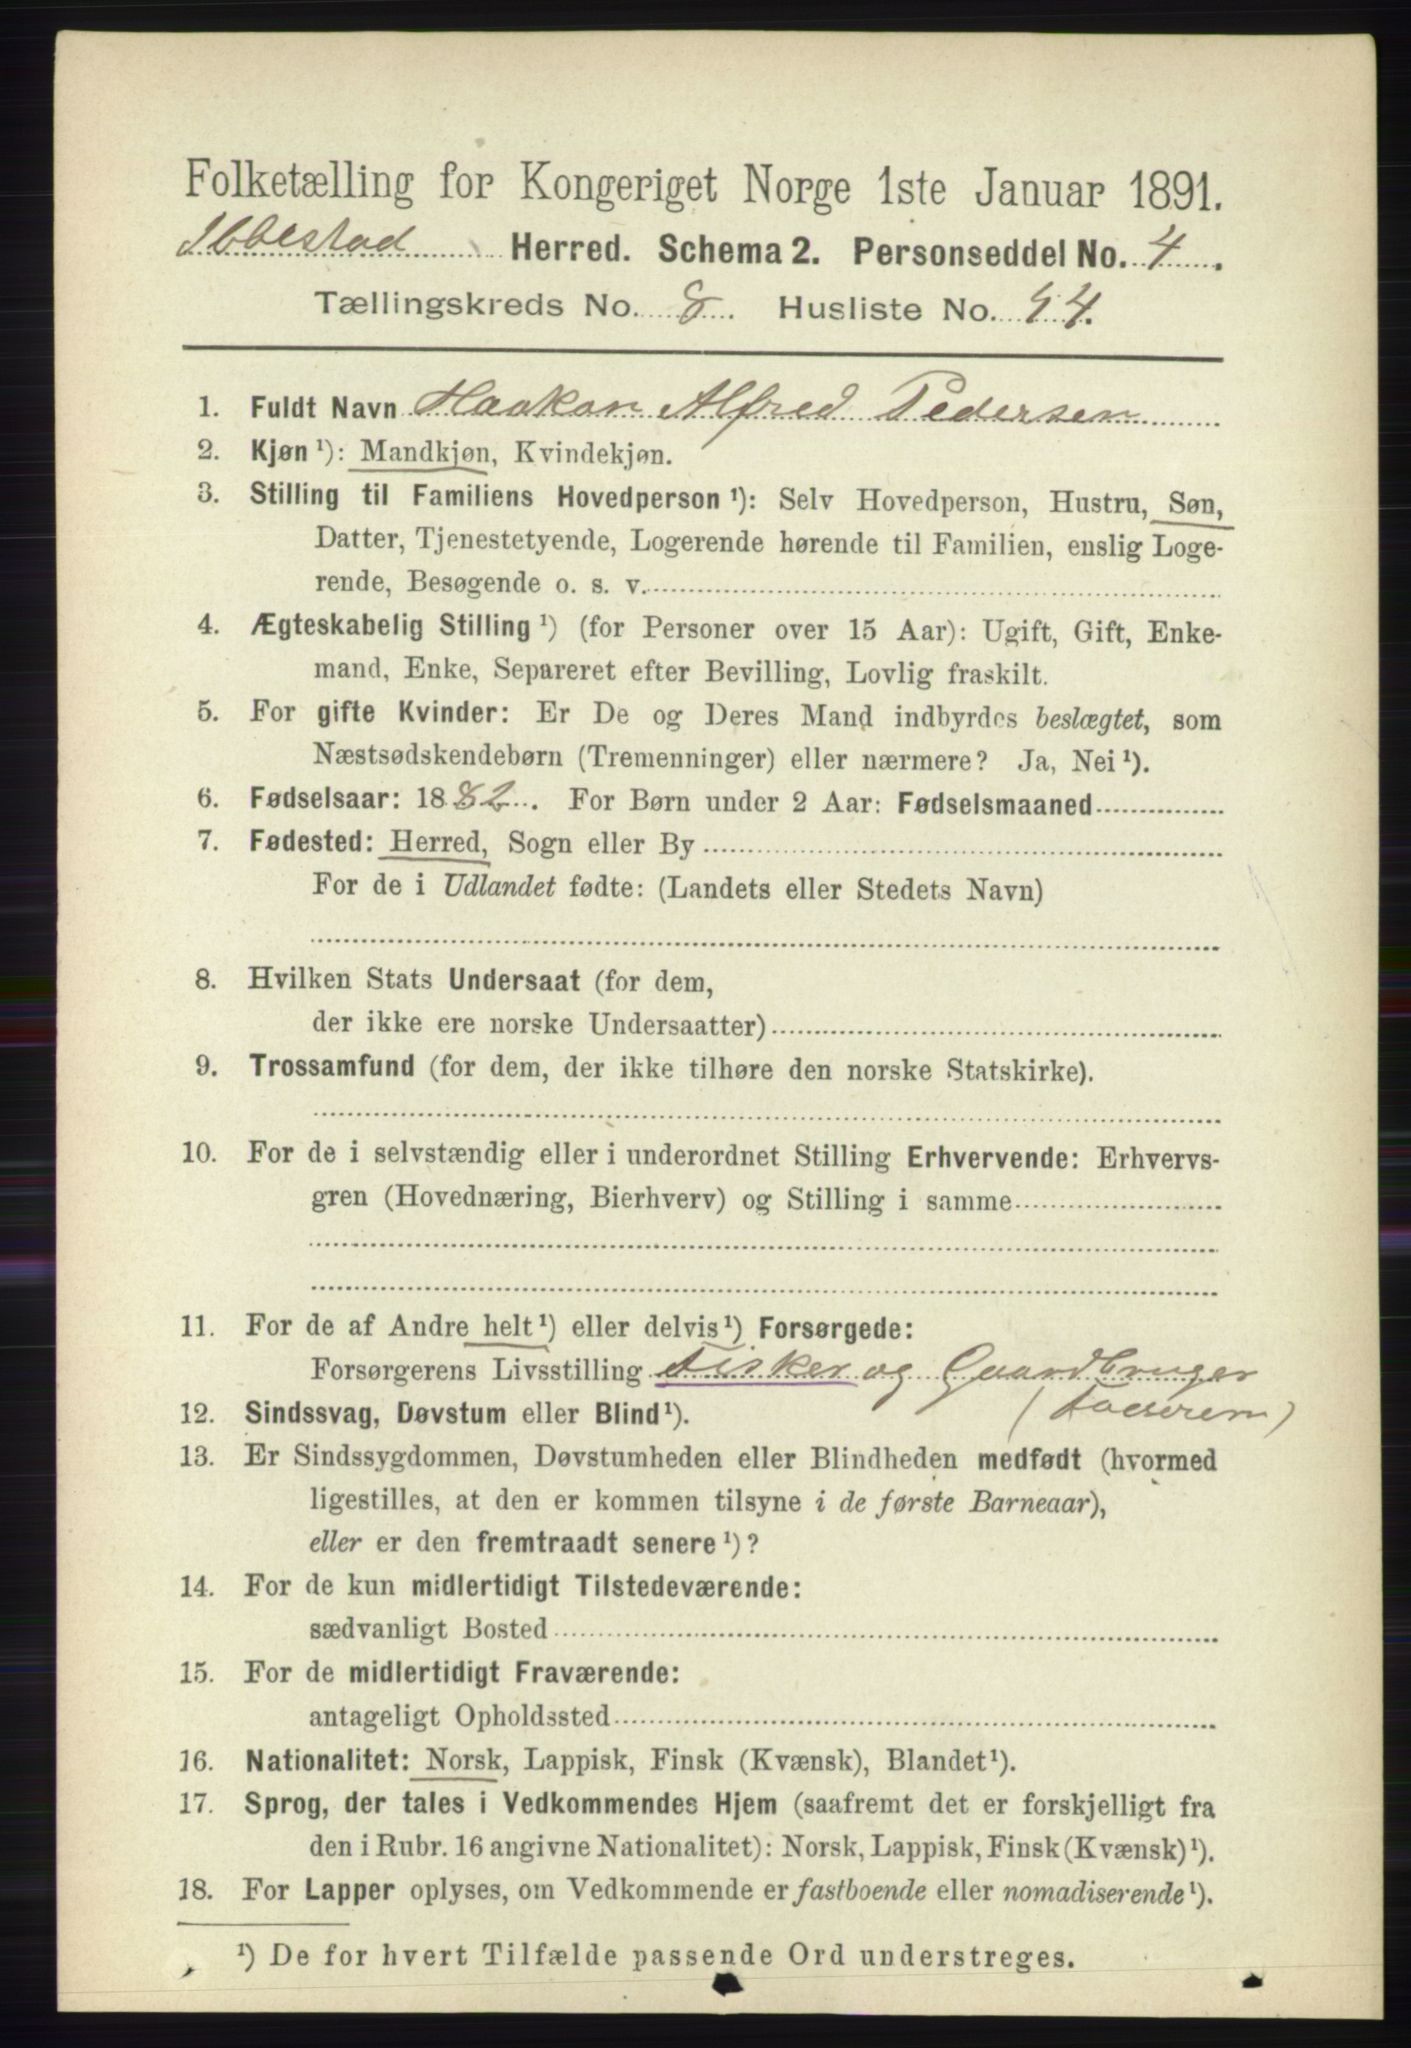 Folketælling for Kongeriget Norge 1ste Januar 1891.
Ibbestad Herred. Schema 2. Personseddel No. 4.
Tællingskreds No. 8. Husliste No. 44.
1. Fuldt Navn Haakon Alfred Pedersen
2. Kjøn ¹): Mandkjøn, Kvindekjøn.
3. Stilling til Familiens Hovedperson ¹): Selv Hovedperson, Hustru, Søn,
Datter, Tjenestetyende, Logerende hørende til Familien, enslig Loge-
rende, Besøgende o. s. v.
4. Ægteskabelig Stilling ¹) (for Personer over 15 Aar): Ugift, Gift, Enke-
mand, Enke, Separeret efter Bevilling, Lovlig fraskilt.
5. For gifte Kvinder: Er De og Deres Mand indbyrdes beslægtet, som
Næstsødskendebørn (Tremenninger) eller nærmere? Ja, Nei ¹).
6. Fødselsaar: 1882. For Børn under 2 Aar: Fødselsmaaned
7. Fødested: Herred, Sogn eller By
For de i Udlandet fødte: (Landets eller Stedets Navn)
8. Hvilken Stats Undersaat (for dem,
der ikke ere norske Undersaatter)
9. Trossamfund (for dem, der ikke tilhøre den norske Statskirke).
10. For de i selvstændig eller i underordnet Stilling Erhvervende: Erhvervs-
gren (Hovednæring, Bierhverv) og Stilling i samme
11. For de af Andre helt ¹) eller delvis ¹) Forsørgede:
Forsørgerens Livsstilling Fisker og Gaardbruger
12. Sindssvag, Døvstum eller Blind ¹). (Faderen)
13. Er Sindssygdommen, Døvstumheden eller Blindheden medfødt (hvormed
ligestilles, at den er kommen tilsyne i de første Barneaar),
eller er den fremtraadt senere ¹)?
14. For de kun midlertidigt Tilstedeværende:
sædvanligt Bosted
15. For de midlertidigt Fraværende:
antageligt Opholdssted
16. Nationalitet: Norsk, Lappisk, Finsk (Kvænsk), Blandet ¹).
17. Sprog, der tales i Vedkommendes Hjem (saafremt det er forskjelligt fra
den i Rubr. 16 angivne Nationalitet): Norsk, Lappisk, Finsk (Kvænsk) ¹).
18. For Lapper oplyses, om Vedkommende er fastboende eller nomadiserende ¹).
¹) De for hvert Tilfælde passende Ord understreges.